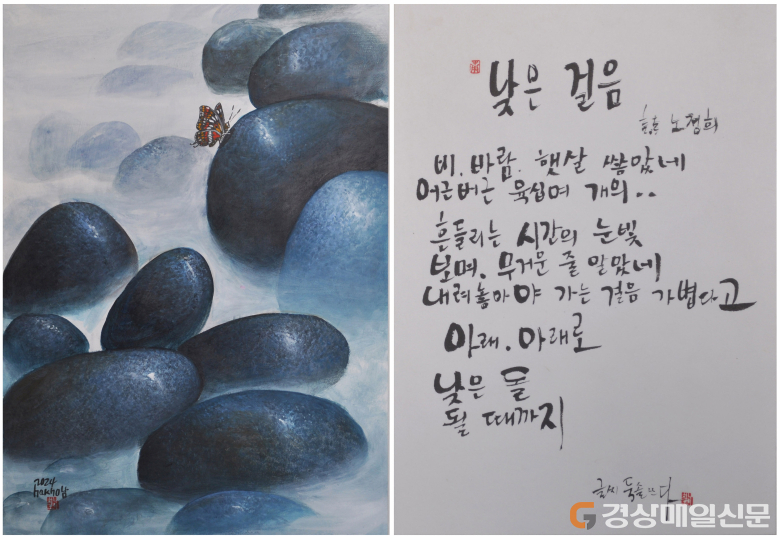 낮은 걸음
노정희
비. 바람. 햇살 쌓았네
어근버근 육십며 개의..
흔들리는 시간의 눈빛
보며. 무거운 줄 알았네
내려놓아야 가는 걸음 가볍다고
아래. 아래로
낮은 돌
될 때까지
글씨
2024
경상매일신문